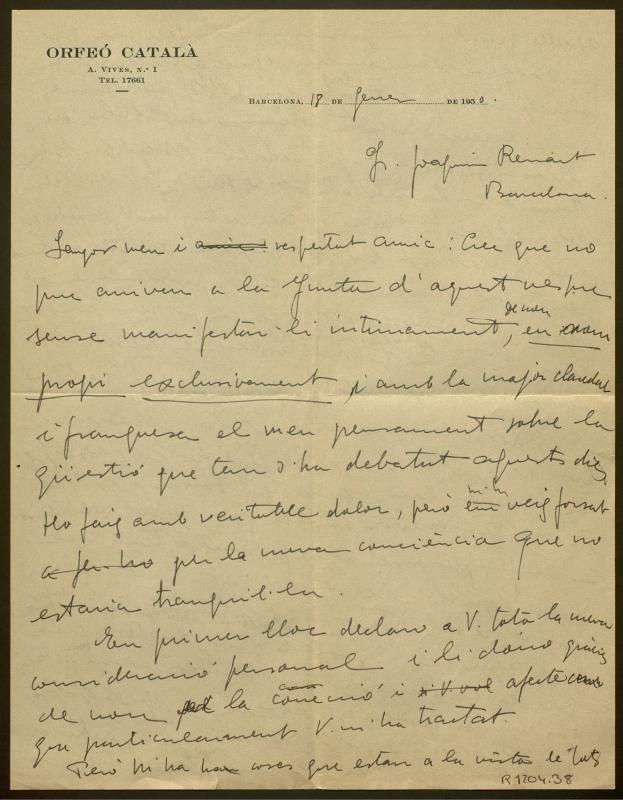 ORFEÓ CATALÀ
A. VIVES, N.º 1
TEL. 17661
BARCELONA, 18 DE Gener DE 1950.
Sr. Joaquim Renart
Barcelona.
Senyor meu i amic: respectat amic: Crec que no
puc arriven a la Junta d'aquest vespre
sense manifestar-li íntimament, en nom
de nou
propi exclusivament, i amb la major claredat
i franquesa el meu pensament sobre la
qüestió que tan s'ha debatut aquests dies.
Ho faig amb veritable dolor, però em veig forsat
m'hi
a fer-ho per la meva conciència que no
estaria tranquil·la.
En primer lloc declaro a V. tota la meva
consideració personal i li dono gràcies
de nou per la correcció i afecte amb
que particularment V. m'ha tractat.
Però hi ha coses que estan a la vista de tots
R 1204.38